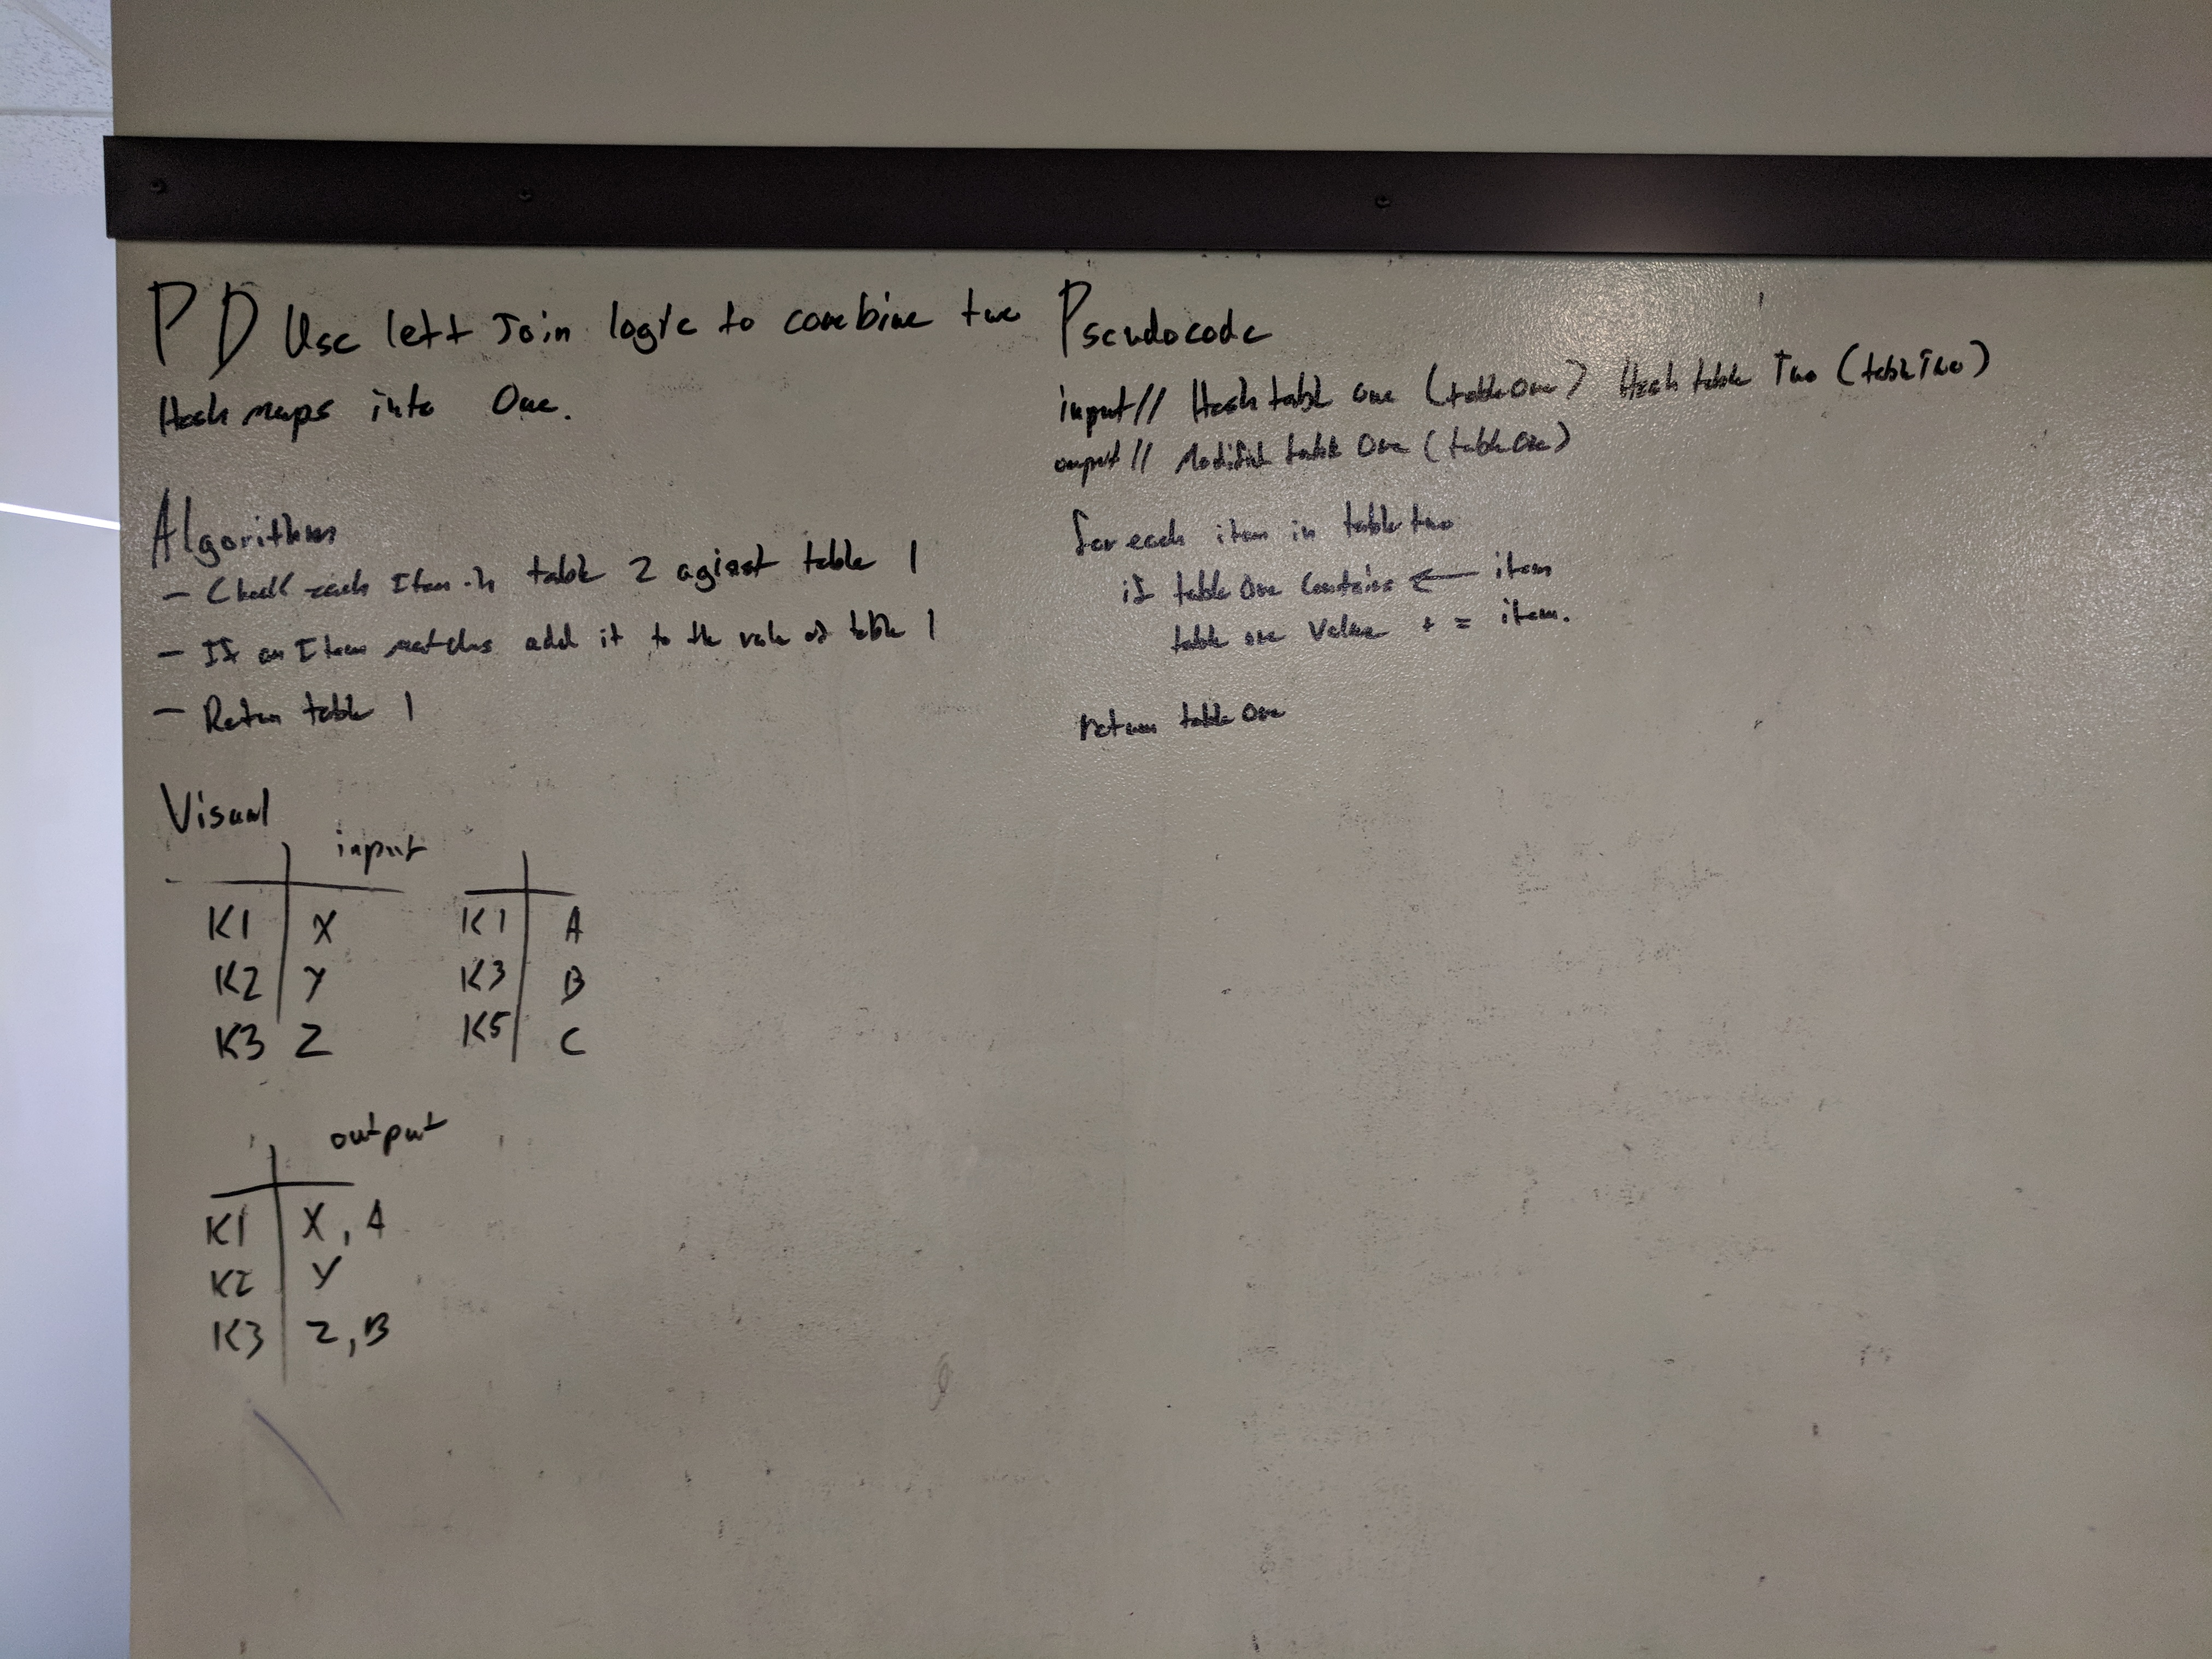 PD Use left Join logic to combine two
Hash maps into One.
Algorithm
- Check each Item in table 2 agienst table 1
- If an Item matches add it to the value of table 1
- Return table 1
Visual
input
K1 X K1 A
K2 Y K3 B
K3 Z K5 C
output
K1 X, A
K2 Y
K3 Z, B
Pseudocode
input// Hash table one (table One) Hash table Two (table Two)
output// Modified table One (table One)
for each item in table two
if table One Contains ← item
table one Value += item.
return table One